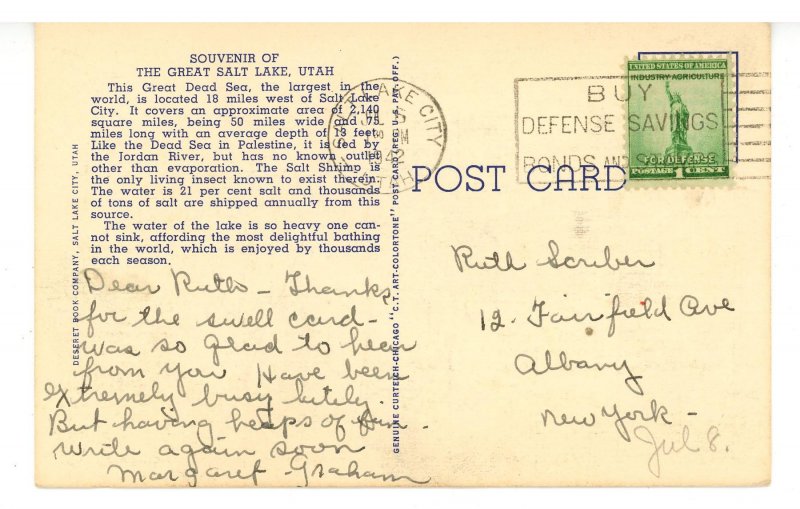 SOUVENIR OF
THE GREAT SALT LAKE, UTAH
This Great Dead Sea, the largest in the
world, is located 18 miles west of Salt Lake
City. It covers an approximate area of 2,140
square miles, being 50 miles wide and 75
miles long with an average depth of 13 feet.
Like the Dead Sea in Palestine, it is fed by
the Jordan River, but has no known outlet
other than evaporation. The Salt Shrimp is
the only living insect known to exist therein.
The water is 21 per cent salt and thousands
of tons of salt are shipped annually from this
source.
The water of the lake is so heavy one can-
not sink, affording the most delightful bathing
in the world, which is enjoyed by thousands
each season.
DESERET BOOK COMPANY, SALT LAKE CITY, UTAH
Dear Ruth - Thanks
for the swell card -
was so glad to hear
from you Have been
extremely busy lately.
But having heaps of fun
write again soon
Margaret Graham
GENUINE CURTEICH-CHICAGO "C.T. ART-COLORTONE" POST CARD (REG. U.S. PAT. OFF.)
SALT LAKE CITY
UTAH
BUY
DEFENSE SAVINGS
BONDS AND
UNITED STATES OF AMERICA
INDUSTRY AGRICULTURE
FOR DEFENSE
POSTAGE 1 CENT
POST CARD
Ruth Scriber
12. Fairfield Ave
Albany
New York -
Jul 8.